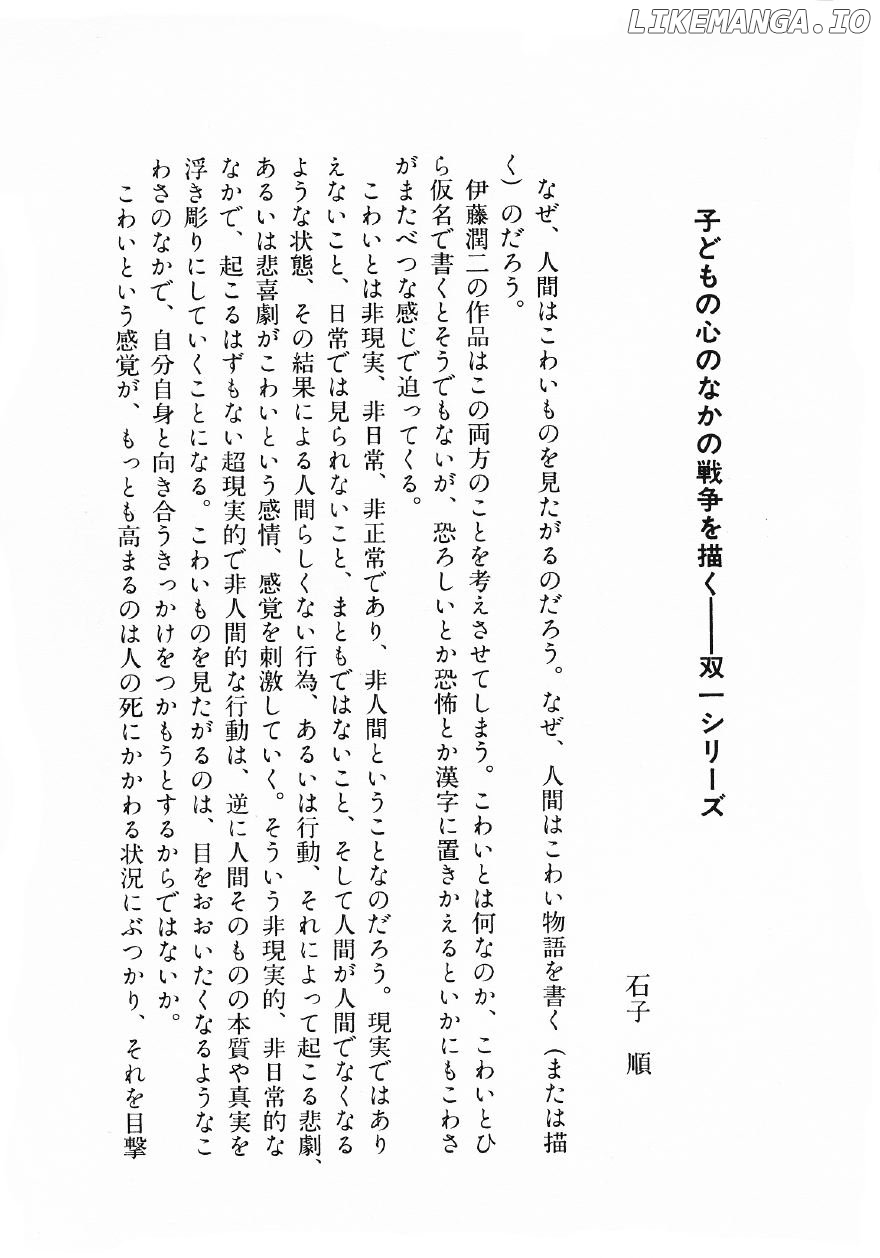 LIKEMANGA.IO
子どもの心のなかの戦争を描く——双一シリーズ
石子　順
なぜ、人間はこわいものを見たがるのだろう。なぜ、人間はこわい物語を書く（または描
く）のだろう。
伊藤潤二の作品はこの両方のことを考えさせてしまう。こわいとは何なのか、こわいとひ
ら仮名で書くとそうでもないが、恐ろしいとか恐怖とか漢字に置きかえるといかにもこわさ
がまたべつな感じで迫ってくる。
こわいとは非現実、非日常、非正常であり、非人間ということなのだろう。現実ではあり
えないこと、日常では見られないこと、まともではないこと、そして人間が人間でなくなる
ような状態、その結果による人間らしくない行為、あるいは行動、それによって起こる悲劇、
あるいは悲喜劇がこわいという感情、感覚を刺激していく。そういう非現実的、非日常的な
なかで、起こるはずもない超現実的で非人間的な行動は、逆に人間そのものの本質や真実を
浮き彫りにしていくことになる。こわいものを見たがるのは、目をおおいたくなるようなこ
わさのなかで、自分自身と向き合うきっかけをつかもうとするからではないか。
こわいという感覚が、もっとも高まるのは人の死にかかわる状況にぶつかり、それを目撃